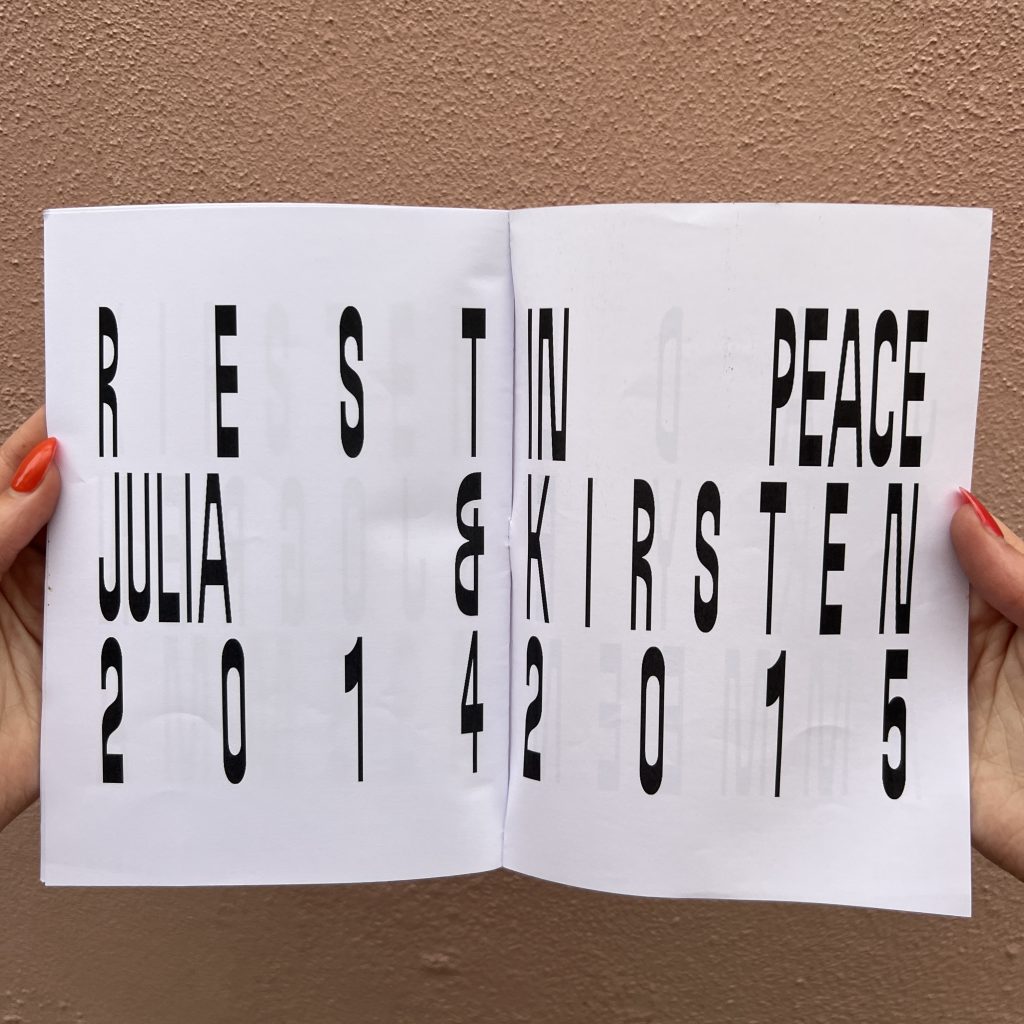 REST IN PEACE
JULIA & KIRSTEN
2014 2015